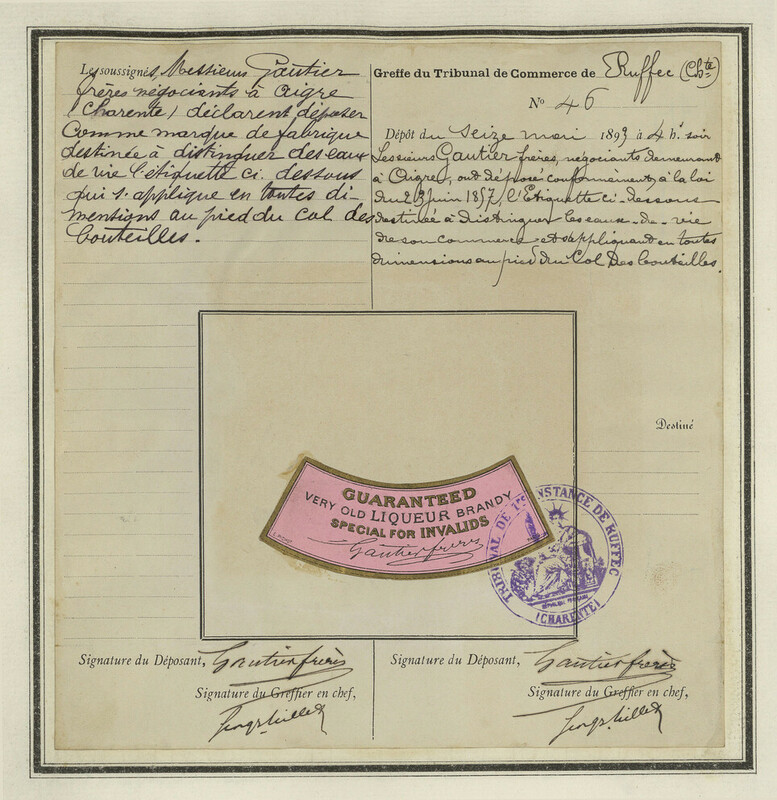 Les soussignés, Messieurs Gautier
frères négociants à Aigre
(Charente) déclarent déposer
comme marque de fabrique
destinée à distinguer des eaux
de vie l'étiquette ci-dessous
qui s'applique en toutes di
mentions au pied du col des
bouteilles.
Greffe du Tribunal de Commerce de Ruffec (Chte)
No 46
Dépôt du seize mai 1893 à 4 h. soir
Les sieurs Gautier frères, négociants demeurant
à Aigre, ont déposé conformément à la loi
du 23 juin 1857, l'Etiquette ci-dessous
destinée à distinguer les eaux-de-vie
de son commerce et s'appliquant en toutes
dimensions au pied du Col des bouteilles.
Destiné
GUARANTEED
VERY OLD LIQUEUR BRANDY
SPECIAL FOR INVALIDS
Gautier frères
TRIBUNAL DE 1re INSTANCE DE RUFFEC
(CHARENTE)
Signature du Déposant, Gautier frères
Signature du Greffier en chef,
Signature du Déposant, Gautier frères
Signature du Greffier en chef,